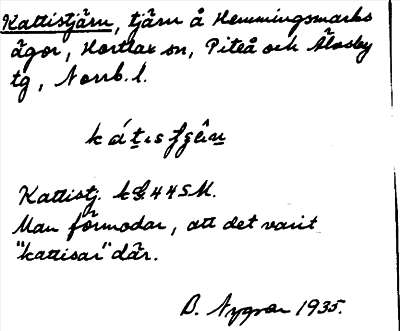 Kattistjärn, tjärn å Hemmingsmarks
ägor, Hortlax sn, Piteå och Älvsby
tg, Norrb. l.
kát̲ıs fʒên̲
Kattistj. kG 44 SK.
Man förmodar, att det varit
"kattisar" där.
B. Nygren 1935.